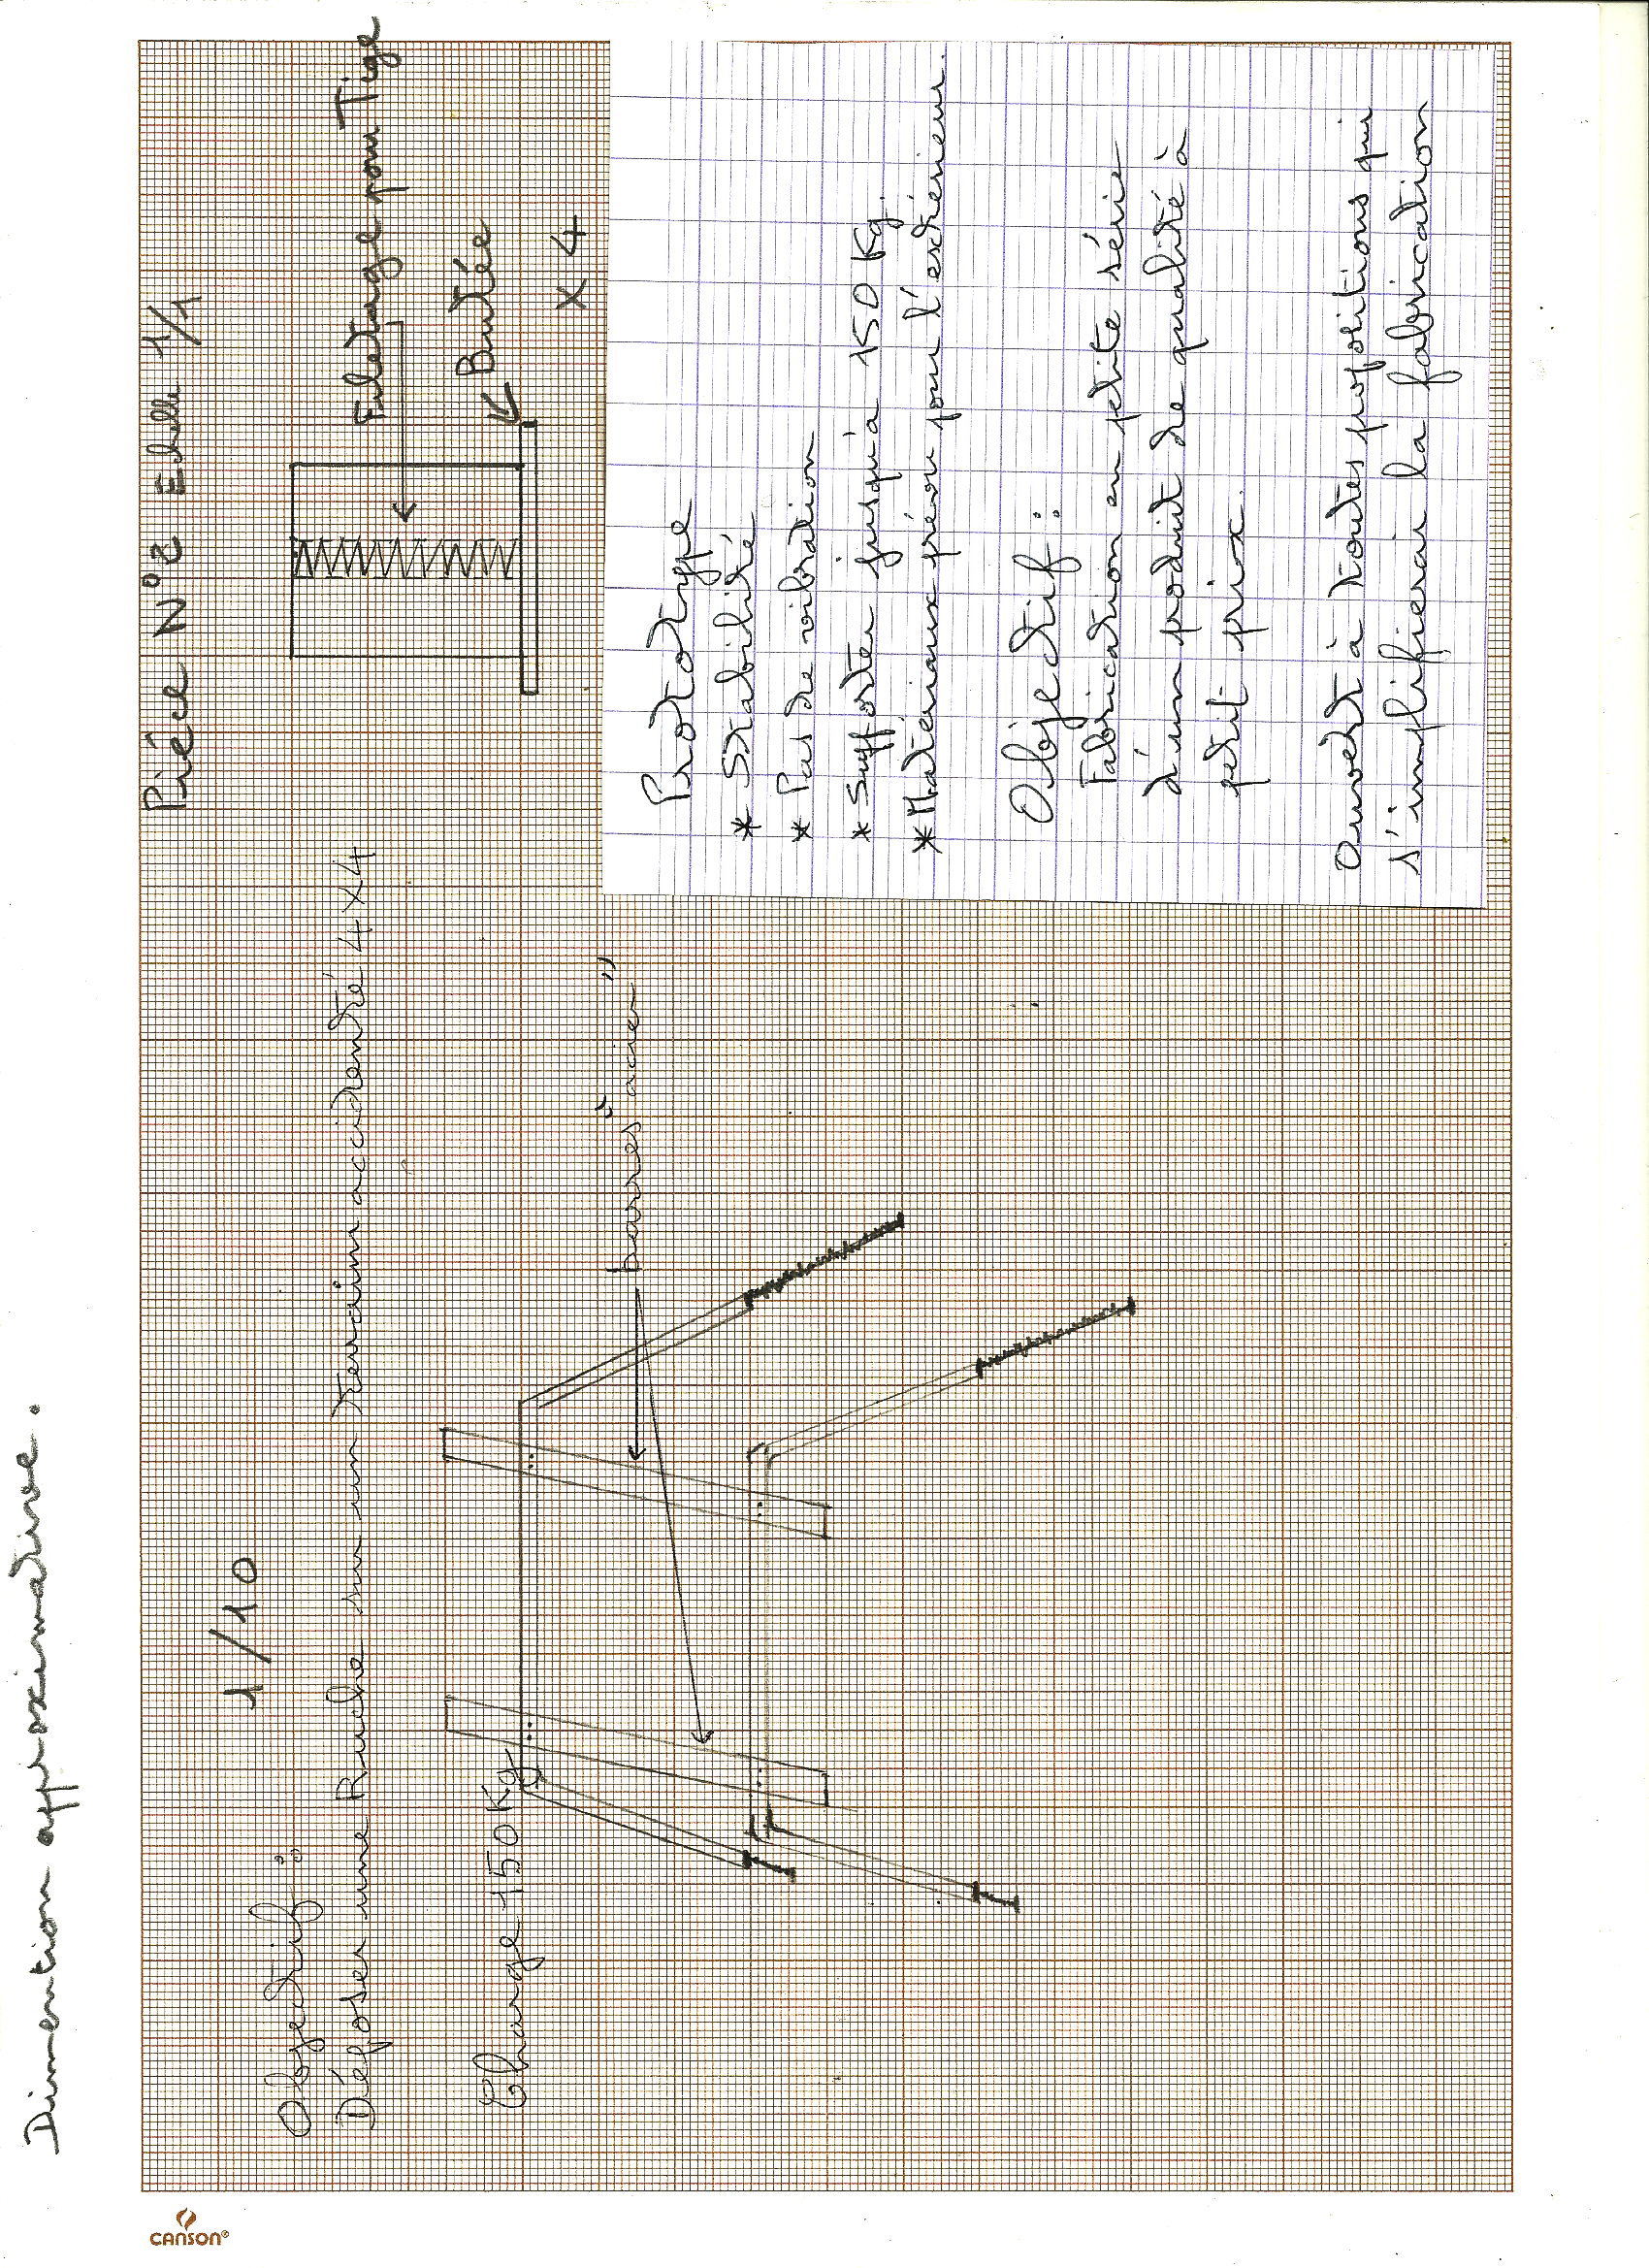 Dimention approximative.
1/10
Objectif :
Déposer une Ruche sur un terrain accidenté 4X4
Charge 150 Kg
barres "acier"
Pièce N°2 Echelle 1/1
Filetage pour Tige
Butée
X 4
Prototype
* Stabilité
* Pas de vibration
* Supporter jusqu'a 150 Kg.
* Matériaux prévu pour l'extérieur.
Objectif :
Fabrication en petite série
d'un produit de qualité à
petit prix.
Ouvert à toutes propositions qui
s'implifierai la fabrication
CANSON®